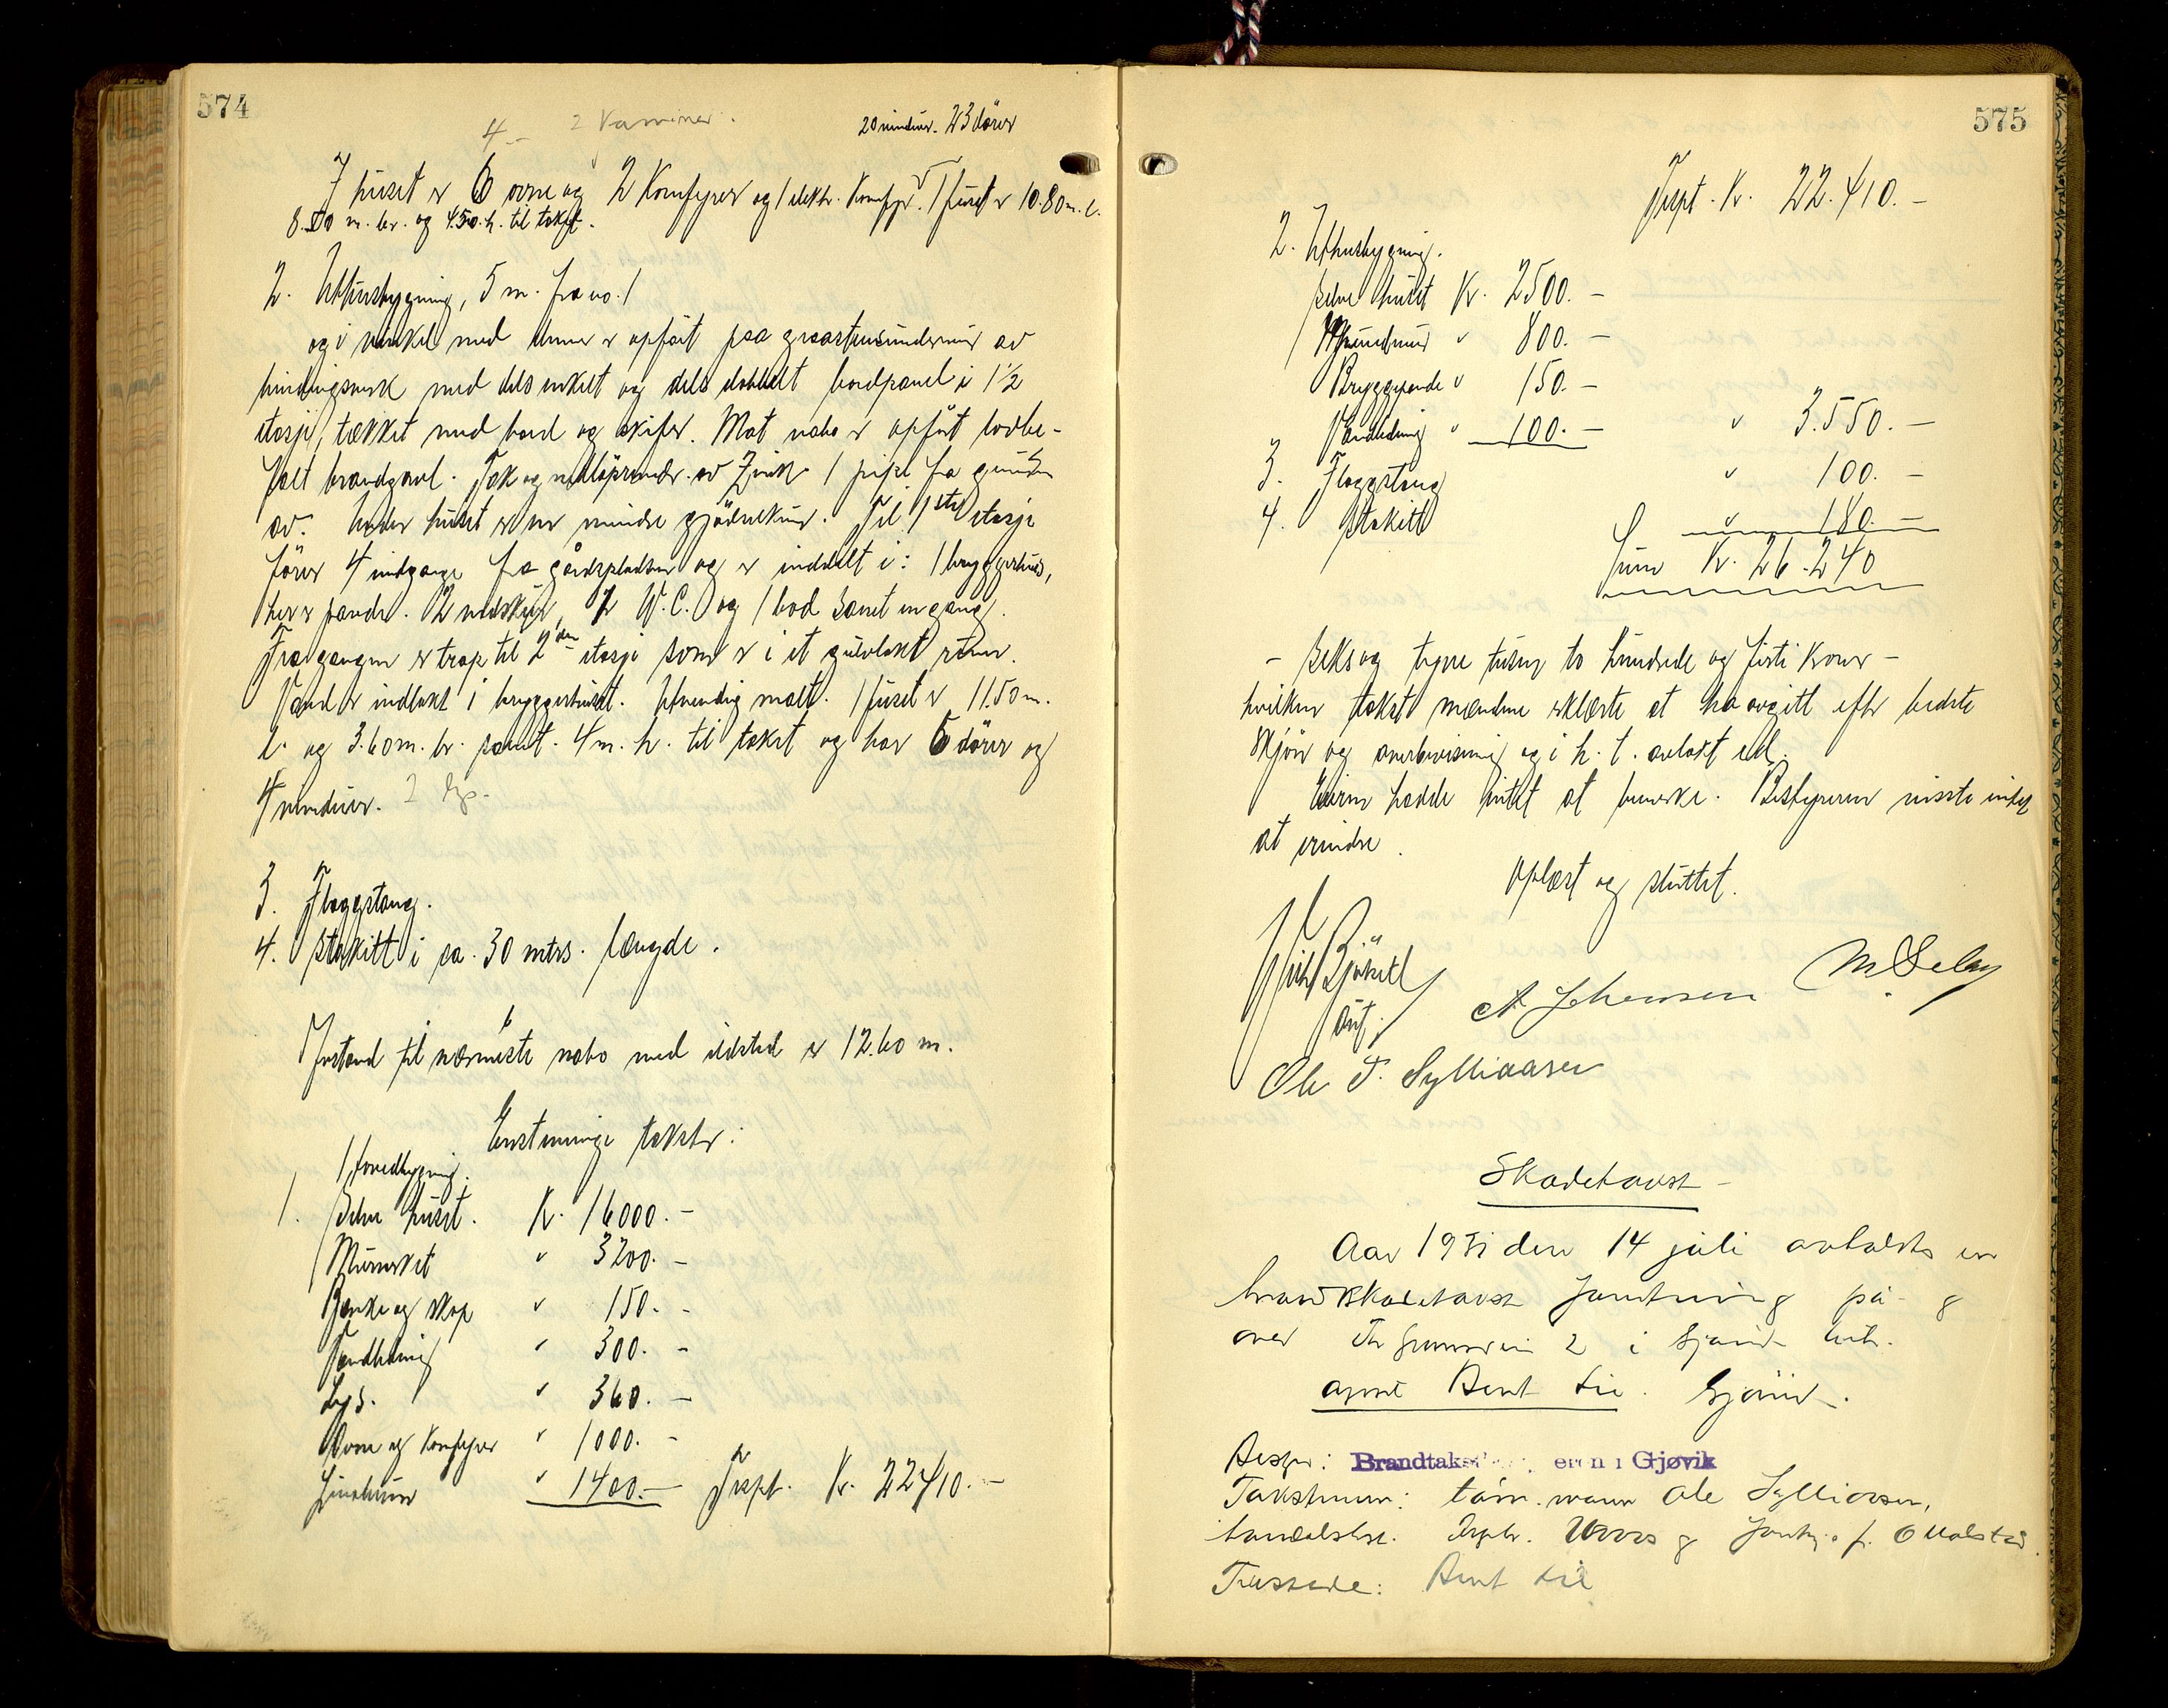 574
4 – 2 Kaminer. 20 vinduer. 23 dörer
I huset er 6 ovne og 2 Komfyrer og 1 elektr. Komfyr. Huset er 10.80 m. l.
8.50 m. br. og 4.50. h. til taket.
2. Uthusbygning, 5 m. fra no. 1
og i vinkel med denne er opfört paa graastensundermur av
bindingsverk med dels enkelt og dels dobbelt bordpanel i 1 1/2
etasje, tækket med bord og skifer. Mot nabo er opfört lovbe-
falt brandgavl. Tak og nedlöpsrender av Zink. 1 pipe fra grunden
av. Under huset er en mindre gjödselkum. Til 1ste etasje
förer 4 indgange fra gårdspladsen og er inddelt i: 1 bryggerhus,
her er pande. 2 vedskjul, 2 W.C. og 1 bod samt en gang.
Fra gangen er trap til 2den etasje som er i et gulvlakt rum.
Vand er indlakt i bryggerhuset. Utvendig malt. Huset er 11.50 m.
l. og 3.60 m. br. samt. 4 m. h. til taket og har 6 dörer og
4 vinduer. 2
3. Flaggstang.
4. Stakitt i ca. 30 mtrs. længde.
Avstand til nærmeste nabo med ildsted er 12.60 m.
Enstemmige takster:
Hovedbygning.
1. Selve huset. Kr. 16000. –
Murverket " 3200. –
Benke og skap " 150. –
Vandledning " 300. –
Lys. " 360. –
Ovne og Komfyrer " 1000. –
" 1400. – Trspt. Kr. 22410. –
575
Trspt. Kr. 22.410. –
2. Uthusbygning.
Selve huset Kr. 2500. –
Grundmur " 800. –
Bryggepande " 150. –
Vandledning " 100. – " 3.550. –
3. Flaggstang " 100. –
4. Stakitt " 180. –
Sum Kr. 26.240
– Seks og tyve tusen to hundrede og firti kroner –
hvilken takst mændene erklærte at ha avgitt efter bedste
skjön og overbevisning og i h. t. avlakt ed.
Eieren hadde intet at bemerke. Bestyreren visste intet
at erindre.
Oplæst og sluttet.
A Johansen M Seby
Ole T. Sylliaasen
Skadetakst –
Aar 1931 den 14 juli avholdtes en
brandskadetakst forretning på – g
over Thr 2 i Gjøvik
Bent Lie. Gjøvik.
Bestyr: Brandtaks eren i Gjøvik
Takstmen: töm. mann Ole Sylliaasen,
Tilstede: Bent Lie